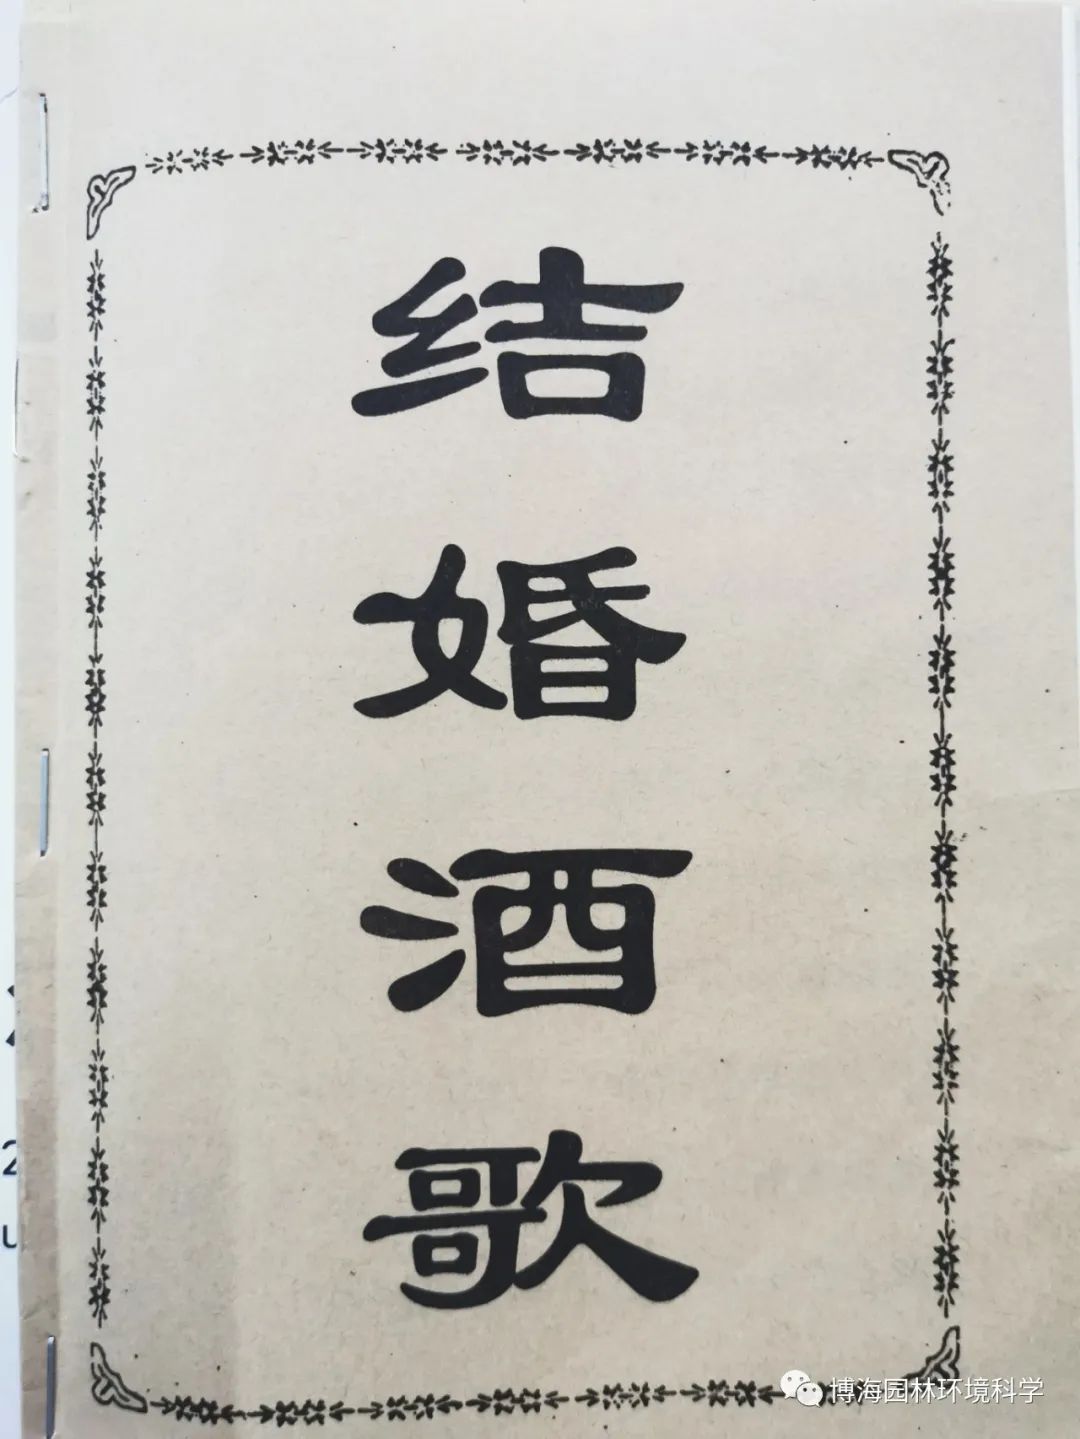 结
婚
酒
歌
博海园林环境科学